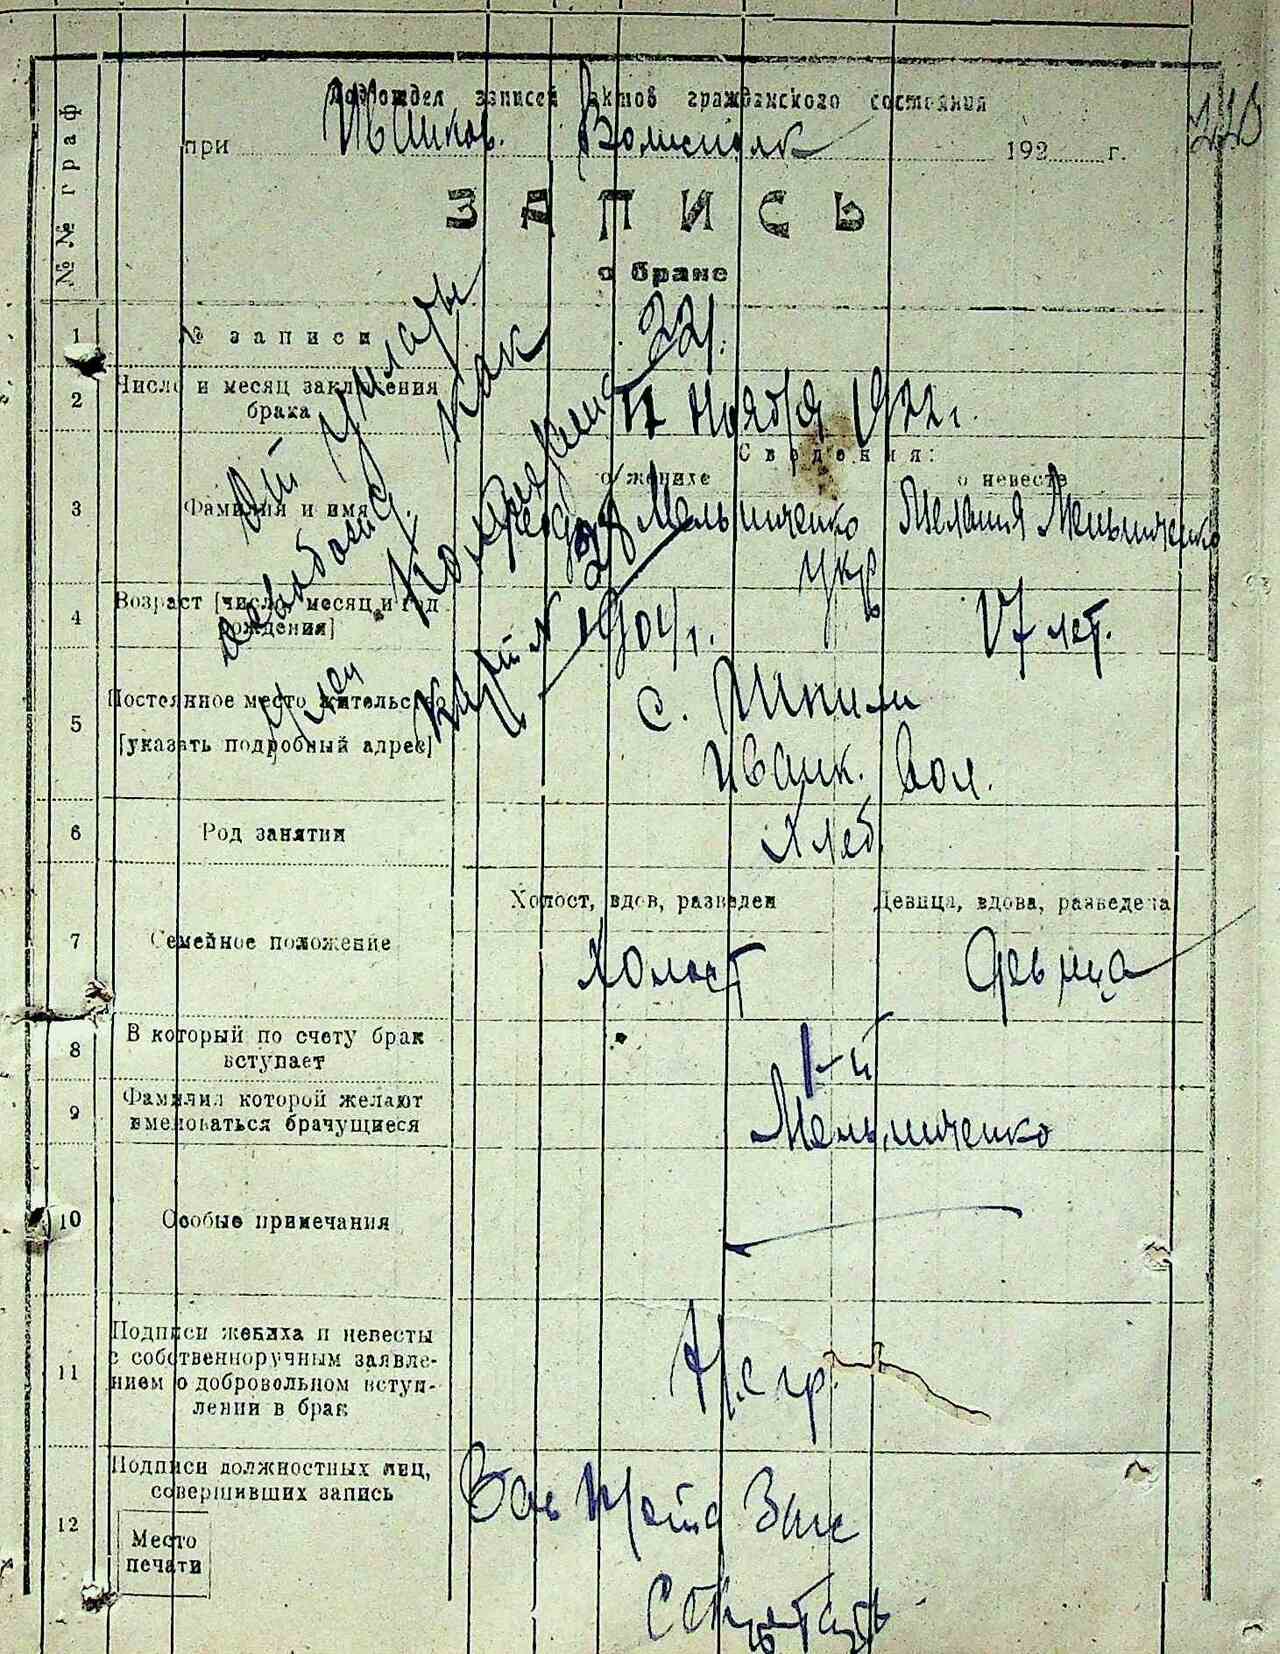 Подотдел записей актов гражданского состояния
при Иванков. Волисполк 192 г.
ЗАПИСЬ
о браке
№№ граф
1 № записи 221.
2 Число и месяц заключения брака ноября 1922 г.
Сведения:
о женихе о невесте
3 Фамилия и имя Мельниченко Мелания Мельниченко
укр
4 Возраст [число, месяц и год рождения] 1904 г. 17 лет.
5 Постоянное место жительство [указать подробный адрес] с. Шпили
Иванк. вол.
6 Род занятий Хлеб
Холост, вдов, разведен Девица, вдова, разведена
7 Семейное положение Холост Девица
8 В который по счету брак вступает 1-й
9 Фамилия которой желают именоваться брачущиеся Мельниченко
10 Особые примечания
11 Подписи жениха и невесты с собственноручным заявлением о добровольном вступлении в брак Негр.
12 Подписи должностных лиц, совершивших запись
Место печати
Секретарь
От уплаты
освобожд. как
член